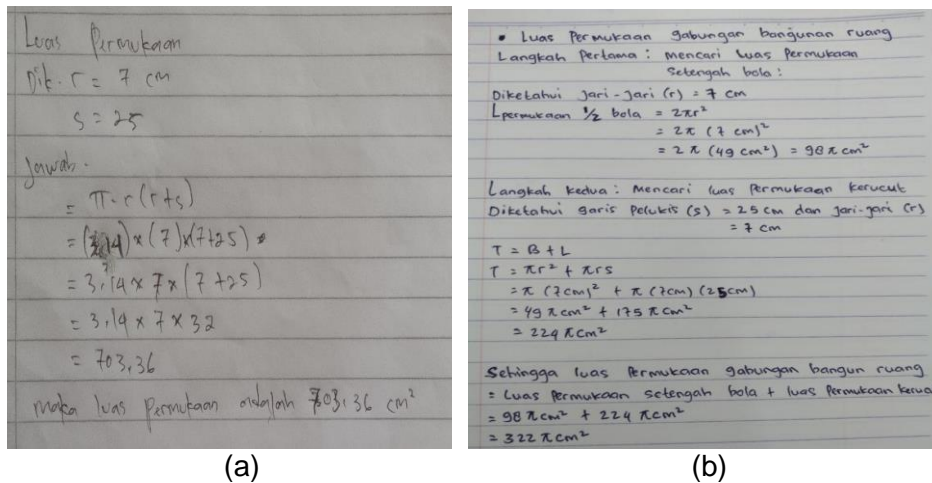 Luas Permukaan
Dik. r = 7 cm
s = 25
Jawab.
= π . r (r+s)
= (3,14) x (7) x (7+25)
= 3,14 x 7 x (7+25)
= 3,14 x 7 x 32
= 703,36
maka luas permukaan adalah 703,36 cm²
(a)
• Luas Permukaan gabungan bangunan ruang
Langkah Pertama : mencari luas Permukaan
Setengah bola :
Diketahui jari-jari (r) = 7 cm
Lpermukaan ½ bola = 2πr²
= 2π (7 cm)²
= 2 π (49 cm²) = 98 π cm²
Langkah kedua : Mencari luas Permukaan kerucut
Diketahui garis Pelukis (s) = 25 cm dan jari-jari (r)
= 7 cm
T = B + L
T = πr² + πrs
= π (7cm)² + π (7cm) (25cm)
= 49 π cm² + 175 π cm²
= 224 π cm²
Sehingga luas Permukaan gabungan bangun ruang
= Luas Permukaan Setengah bola + luas Permukaan keruc
= 98 π cm² + 224 π cm²
= 322 π cm²
(b)